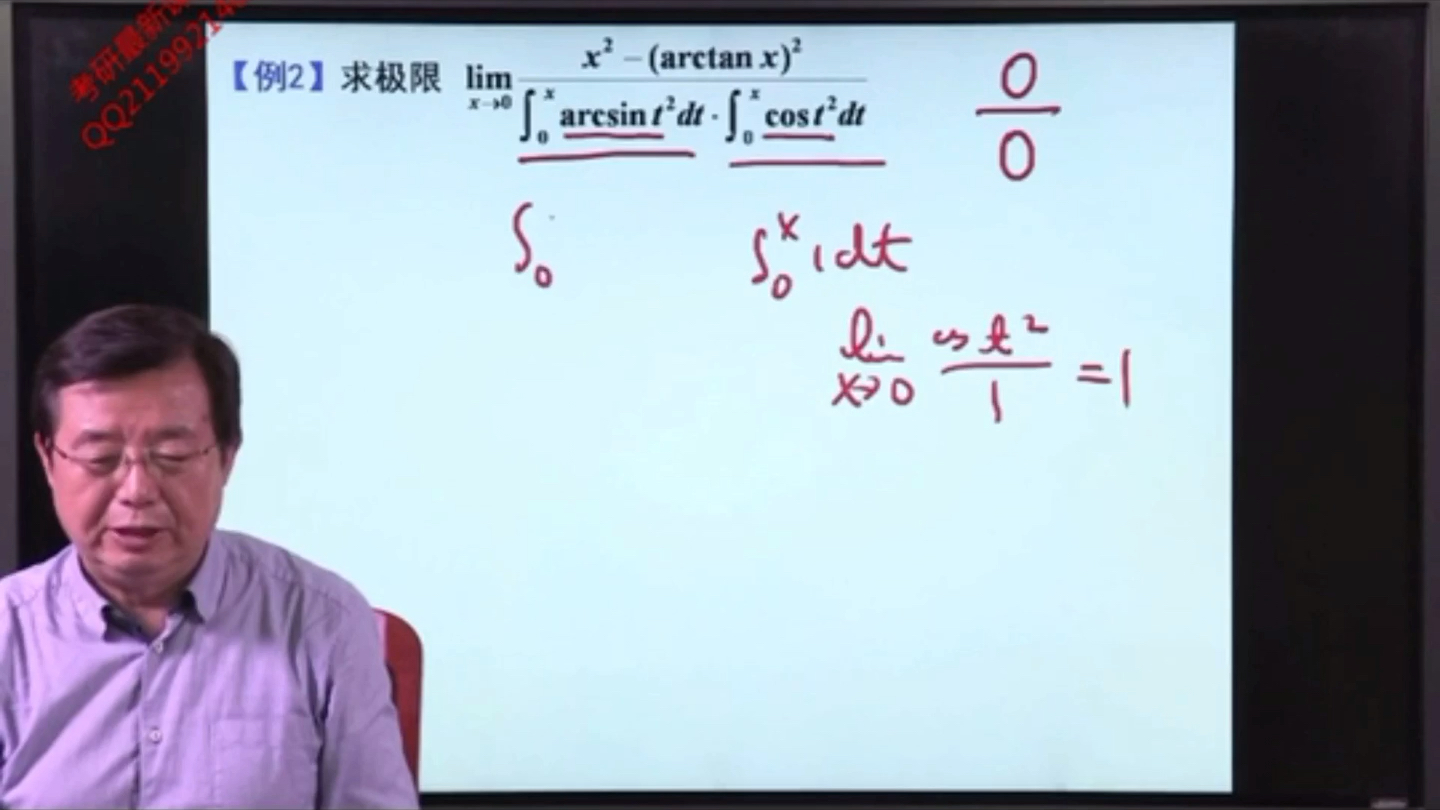 考研最新
QQ21199214
【例2】求极限 lim x→0 x² − (arctan x)² / ∫₀ˣ arcsin t² dt · ∫₀ˣ cos t² dt
0/0
∫₀
∫₀ˣ 1 dt
lim x→0 cos t² / 1 = 1